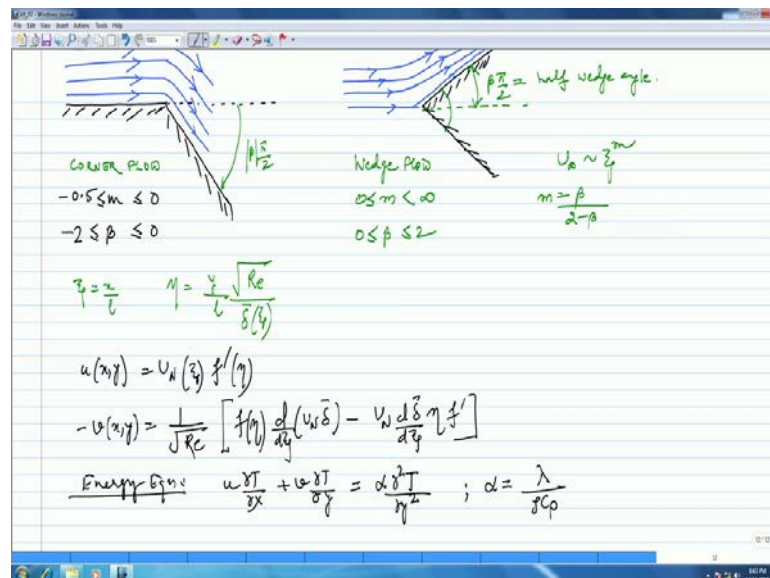 File Edit View Insert Actions Tools Help
|β|π/2
βπ/2 = half wedge angle.
CORNER FLOW
-0.5 ≤ m ≤ 0
-2 ≤ β ≤ 0
Wedge FLOW
0 ≤ m < ∞
0 ≤ β ≤ 2
U∞ ~ ξ^m
m = β/(2-β)
ξ = x/l   η = y/l √Re/δ̄(ξ)
u(x,y) = U_N(ξ) f'(η)
-v(x,y) = 1/√Re [f(η) d/dξ (U_N δ̄) - U_N dδ̄/dξ η f']
Energy Eqn: u ∂T/∂x + v ∂T/∂y = α ∂²T/∂y² ; α = λ/ρCp